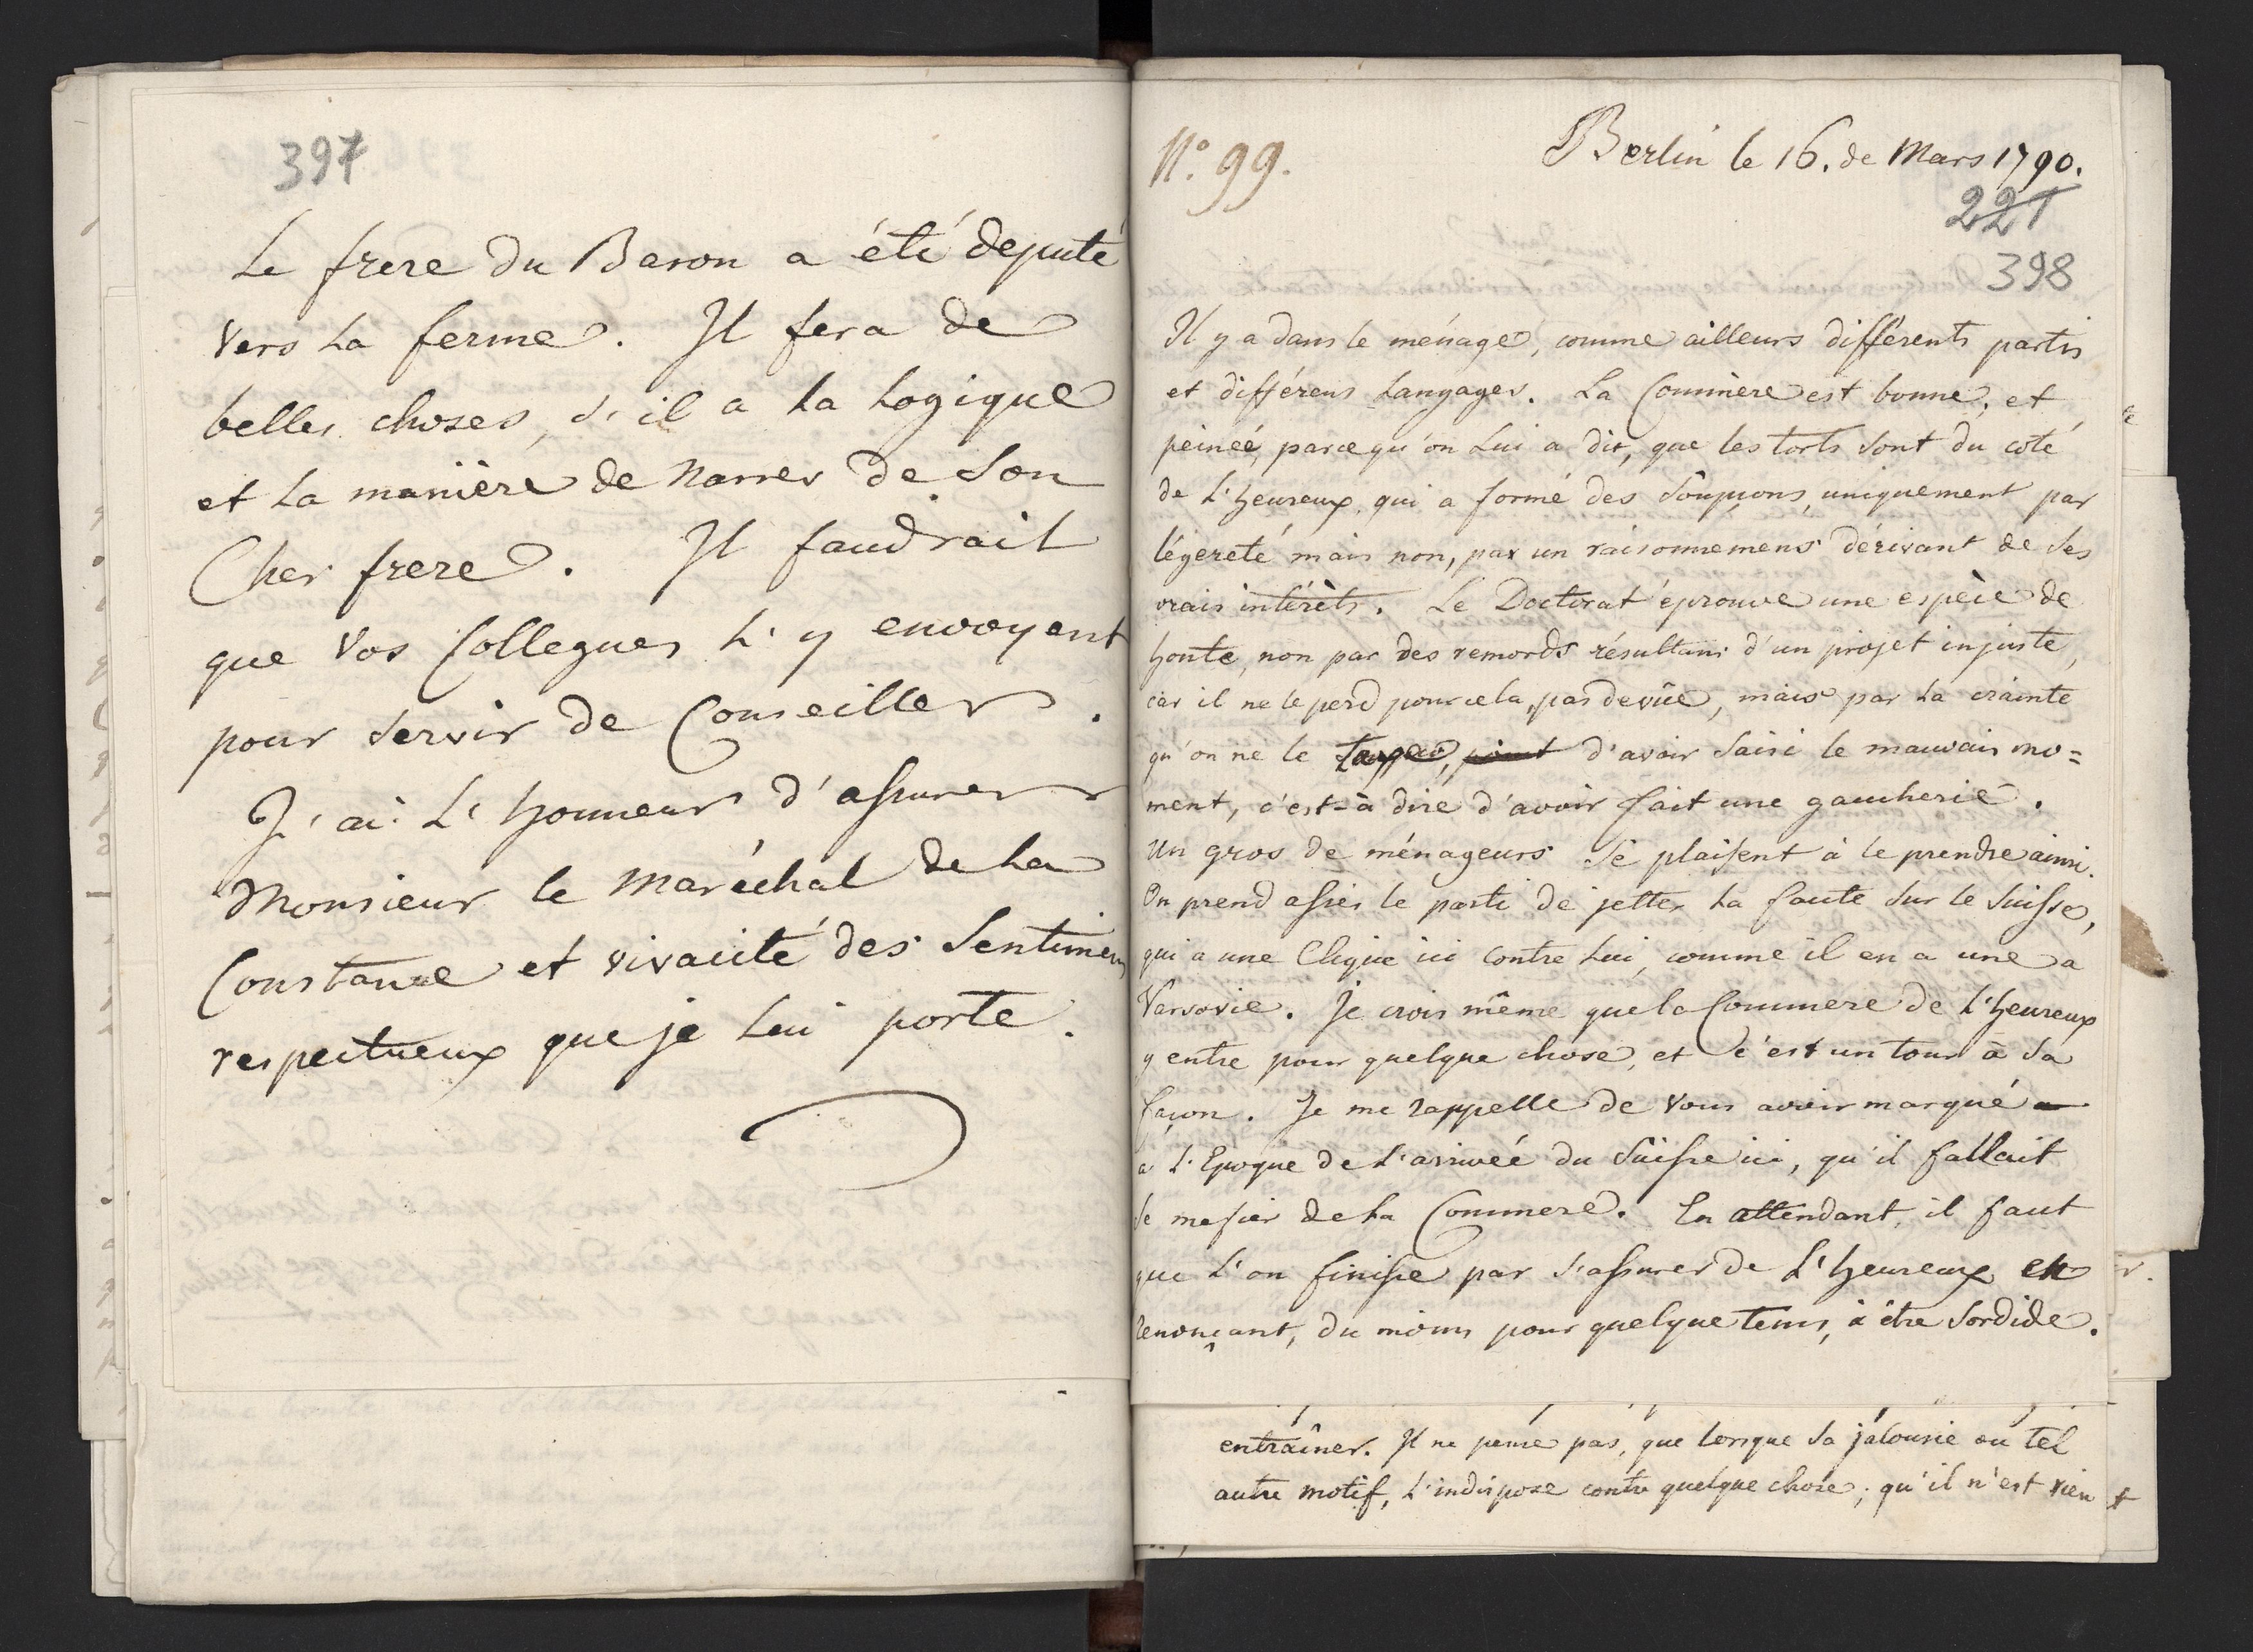 397
Le frere du Baron a été deputé
vers La ferme. Il fera de
belles choses, s'il a La Logique
et La manière de Narrer de Son
Cher frere. Il faudrait
que Vos Collegues L'y envoyent
pour Servir de Conseiller.
J'ai L'honneur d'assurer
Monsieur le Maréchal de La
Constance et vivacité des Sentimens
respectueux que je Lui porte.
N.º 99.
Berlin le 16. de Mars 1790.
221
398
Il y a dans le ménage, comme ailleurs différents partis
et différens Langages. La Commère est bonne, et
peineé, parcequ'on Lui a dit, que les torts Sont du coté
de L'heureux, qui a formé des Soupçons, uniquement par
légereté mais non, par un raisonnemens dérivant de Ses
vrais intérèts. Le Doctorat éprouve une espèce de
honte, non par des remords résultans d'un projet injuste,
car il ne le perd pour cela, pas de vûe, mais par La crainte
qu'on ne le d'avoir Saisi le mauvais mo=
ment, c'est-à dire d'avoir fait une gaucherie.
Un gros de ménageurs Se plaisent à le prendre ainsi.
On prend assés le parti de jetter La faute Sur le Suisse,
qui a une Clique ici contre Lui, comme il en a une a
Varsovie. Je crois même que la Commere de L'heureux
y entre pour quelque chose, et c'est un tour à Sa
façon. Je me rappelle de Vous avoir marqué a
a L'Epoque de L'arriveé du Suisse ici, qu'il fallait
Se mefier de La Commere. En attendant, il faut
que L'on finisse par S'assurer de L'heureux en
renonçant, du moins pour quelque tems, à être Sordide.
entraîner. Il ne pense pas, que lorsque Sa jalousie ou tel
autre motif, L'indispose contre quelque chose, qu'il n'est rien